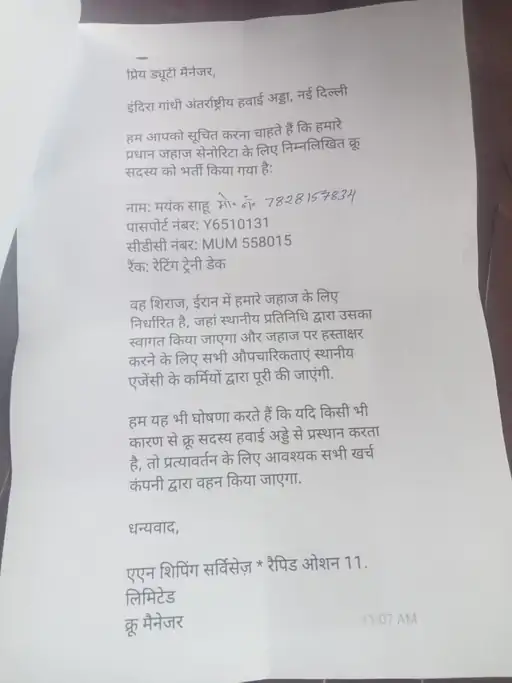 प्रिय ड्यूटी मैनेजर,
इंदिरा गांधी अंतर्राष्ट्रीय हवाई अड्डा, नई दिल्ली
हम आपको सूचित करना चाहते हैं कि हमारे
प्रधान जहाज सेनोरिटा के लिए निम्नलिखित क्रू
सदस्य को भर्ती किया गया है:
नाम: मयंक साहू मो॰ नं॰ 7828157834
पासपोर्ट नंबर: Y6510131
सीडीसी नंबर: MUM 558015
रैंक: रेटिंग ट्रेनी डेक
वह शिराज, ईरान में हमारे जहाज के लिए
निर्धारित है, जहां स्थानीय प्रतिनिधि द्वारा उसका
स्वागत किया जाएगा और जहाज पर हस्ताक्षर
करने के लिए सभी औपचारिकताएं स्थानीय
एजेंसी के कर्मियों द्वारा पूरी की जाएंगी.
हम यह भी घोषणा करते हैं कि यदि किसी भी
कारण से क्रू सदस्य हवाई अड्डे से प्रस्थान करता
है, तो प्रत्यावर्तन के लिए आवश्यक सभी खर्च
कंपनी द्वारा वहन किया जाएगा.
धन्यवाद,
एएन शिपिंग सर्विसेज़ * रैपिड ओशन 11.
लिमिटेड
क्रू मैनेजर
11:07 AM